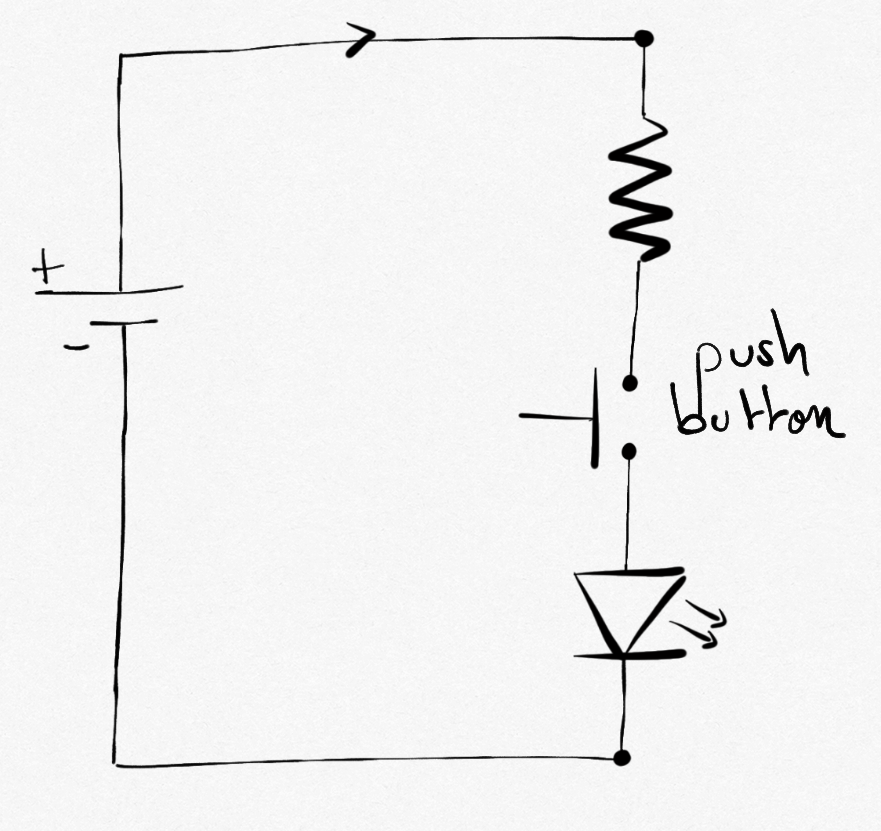 +
-
push
button